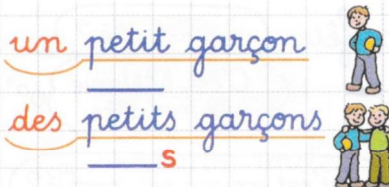 un petit garçon
des petits garçons
s